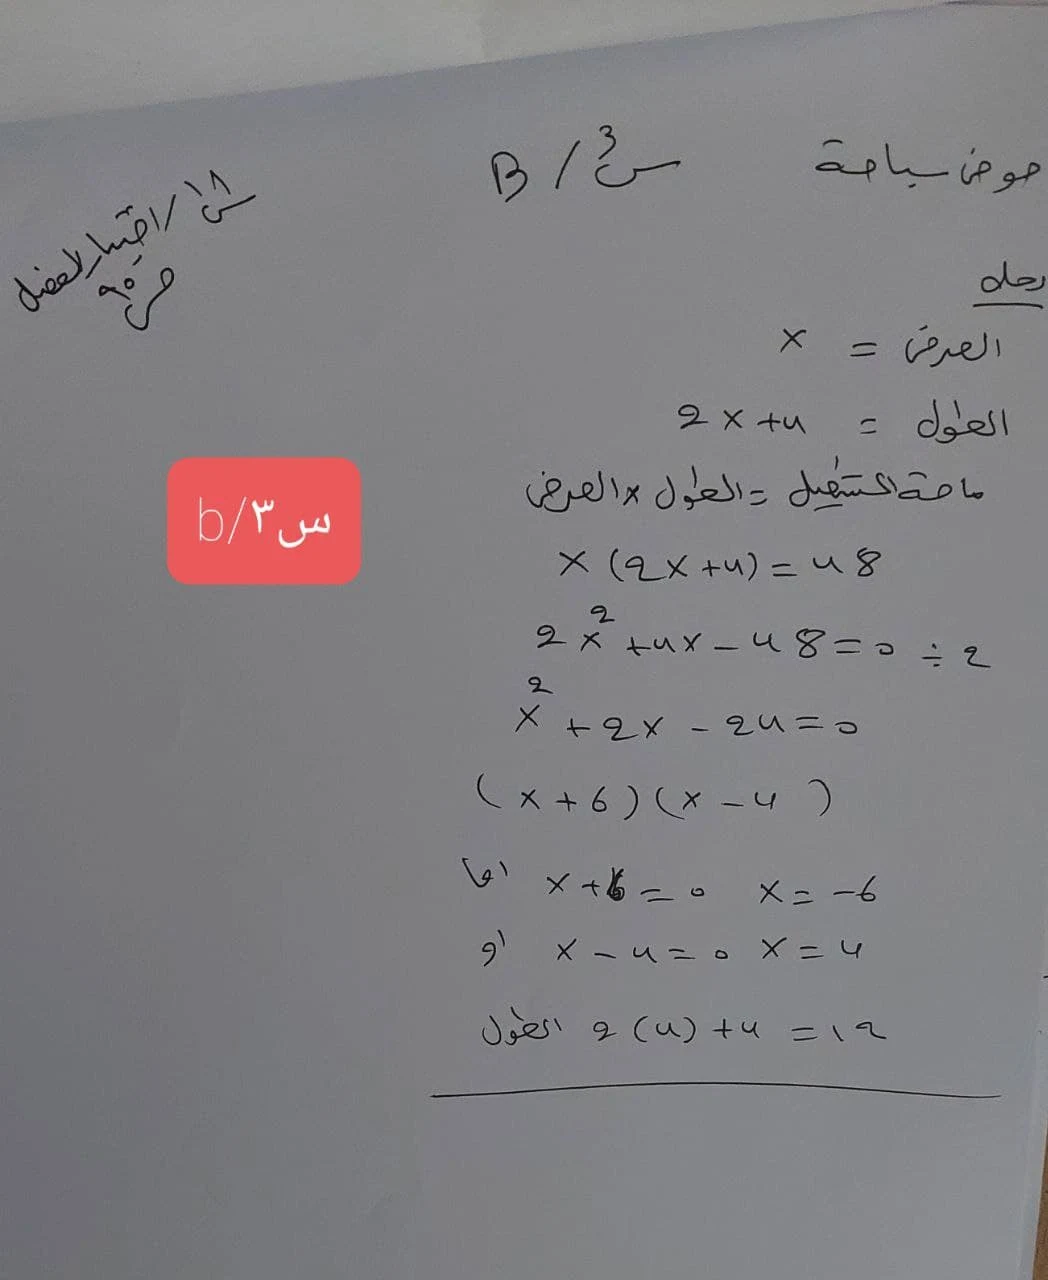 حوض سباحة س3 / B
س18 / اختبار الفصل
ص90
العرض = x
الطول = 2x+4
مساحة المستطيل = الطول × العرض
س٣/b
x (2x+4) = 48
2x² +4x - 48 = 0 ÷ 2
x² + 2x - 24 = 0
(x+6)(x-4)
اما x+6=0 x=-6
او x-4=0 x=4
الطول 2(4)+4 =12